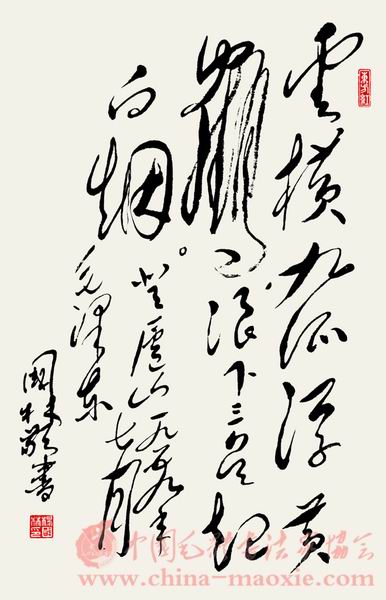 雲橫九派浮黃
鶴，浪下三吳起
白烟。登廬山一九五九年
七月
毛澤東
國林敬書
東方紅
中国毛体书法家协会
www.china-maoxie.com